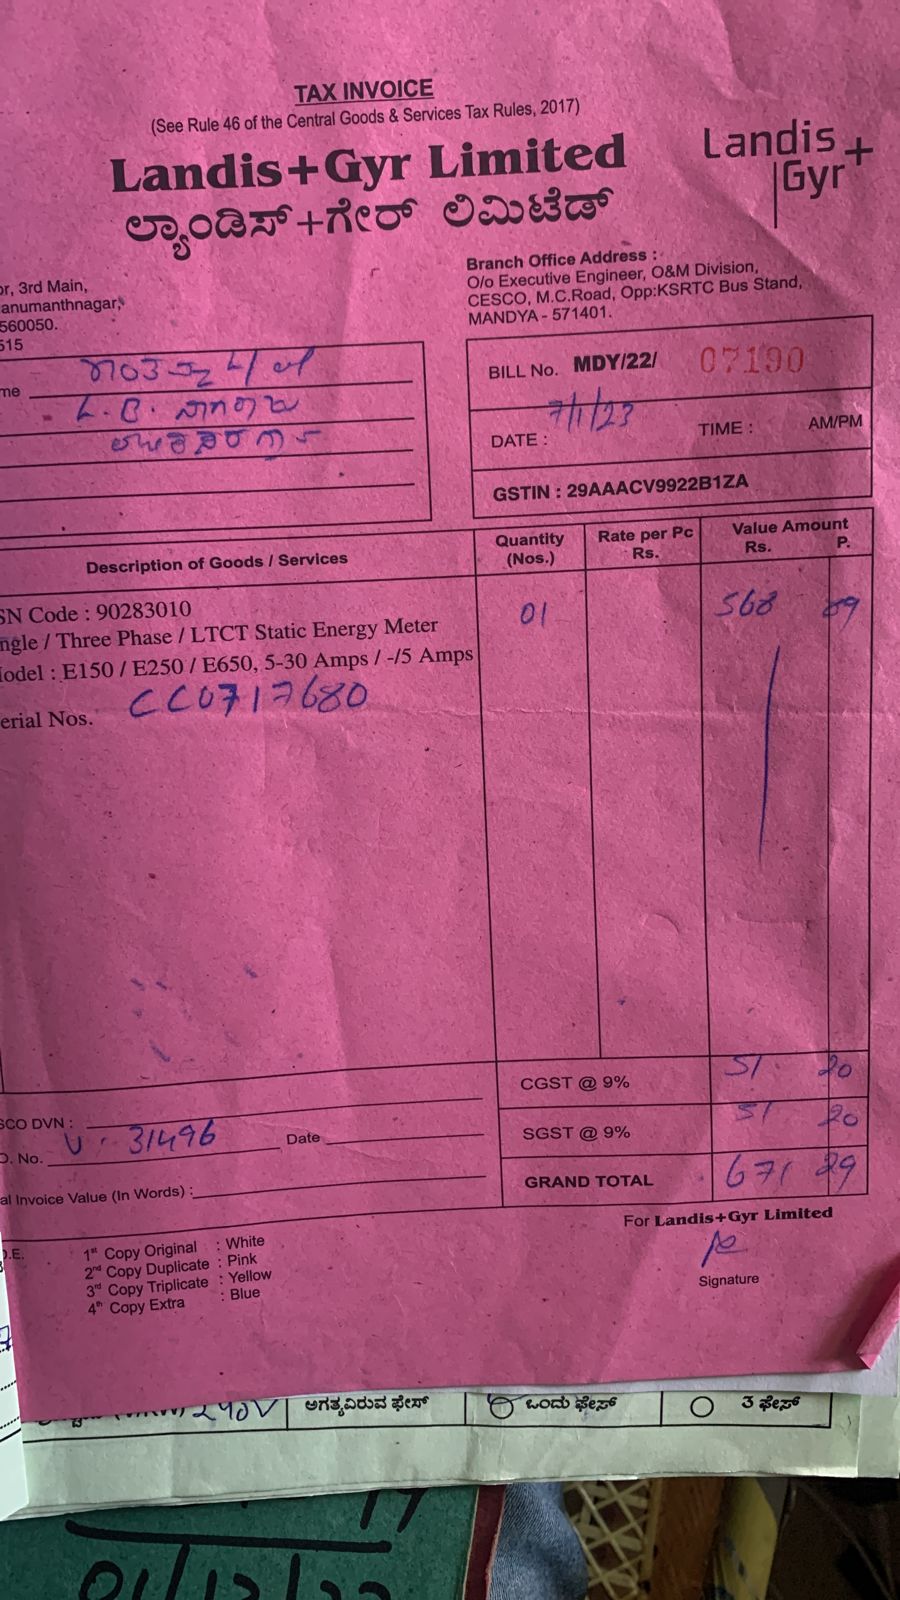 TAX INVOICE
(See Rule 46 of the Central Goods & Services Tax Rules, 2017)
Landis+Gyr Limited
ಲ್ಯಾಂಡಿಸ್+ಗೇರ್ ಲಿಮಿಟೆಡ್
Landis
Gyr+
or, 3rd Main,
anumanthnagar,
560050.
515
Branch Office Address :
O/o Executive Engineer, O&M Division,
CESCO, M.C.Road, Opp:KSRTC Bus Stand,
MANDYA - 571401.
me
BILL No. MDY/22/ 07190
DATE : 7/1/23 TIME : AM/PM
GSTIN : 29AAACV9922B1ZA
Description of Goods / Services
Quantity (Nos.)
Rate per Pc Rs.
Value Amount
Rs. P.
SN Code : 90283010
ngle / Three Phase / LTCT Static Energy Meter
odel : E150 / E250 / E650, 5-30 Amps / -/5 Amps
erial Nos. CC0717680
01
568 89
CGST @ 9% 51 20
SGST @ 9% 51 20
GRAND TOTAL 671 29
SCO DVN :
O. No. 31496 Date
al Invoice Value (In Words) :
O.E.
1st Copy Original : White
2nd Copy Duplicate : Pink
3rd Copy Triplicate : Yellow
4th Copy Extra : Blue
For Landis+Gyr Limited
Signature
240V
ಅಗತ್ಯವಿರುವ ಫೇಸ್
ಒಂದು ಫೇಸ್
3 ಫೇಸ್